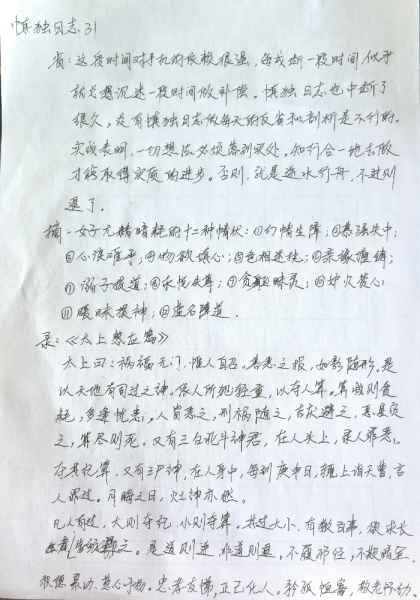 慎独日志 31
省：这段时间对手机的依赖很强，每戒断一段时间似乎
就会想沉迷一段时间做补偿。慎独日志也中断了
很久，没有慎独日志做每天的反省和剖析是不行的。
实践表明，一切想法必须落到实处。知行合一地去做
才能取得实质的进步。否则，就是逆水行舟，不进则
退了。
摘：女子元精暗耗的十二种情状：①幻情生障；②喜强失中；
③心浪难平；④物欲；⑤色相迷性；⑥亲缘缠缚；
⑦溺子损道；⑧失尊；⑨贪眠昧灵；⑩妒火焚心；
⑪暧昧损神；⑫虚名障道。
录：《太上感应篇》
太上曰：祸福无门，惟人自召。善恶之报，如影随形。是
以天地有司过之神，依人所犯轻重，以夺人算。算减则贫
耗，多逢忧患。人皆恶之，刑祸随之，吉庆避之，恶星灾
之，算尽则死。又有三台北斗神君，在人头上，录人罪恶，
夺其纪算。又有三尸神，在人身中，每到庚申日，辄上诣天曹，言
人罪过。月晦之日，灶神亦然。
凡人有过，大则夺纪，小则夺算。其过大小，有数百事，欲求长
生者，先须避之。是道则进，非道则退，不履邪径，不欺暗室。
积德累功，慈心于物。忠孝友悌，正己化人。矜孤恤寡，敬老怀幼。